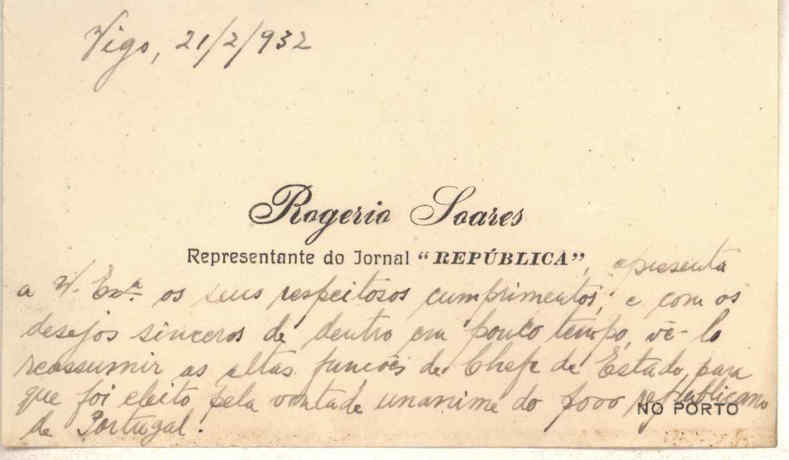 Vigo, 21/2/932
Rogerio Soares
Representante do Jornal "REPÚBLICA", apresenta
a V. Exª. os seus respeitosos cumprimentos, e com os
desejos sinceros de dentro em pouco tempo, vê-lo
reassumir as altas funcões de Chefe de Estado, para
que foi eleito pela vontade unanime do povo republicano
de Portugal!
NO PORTO